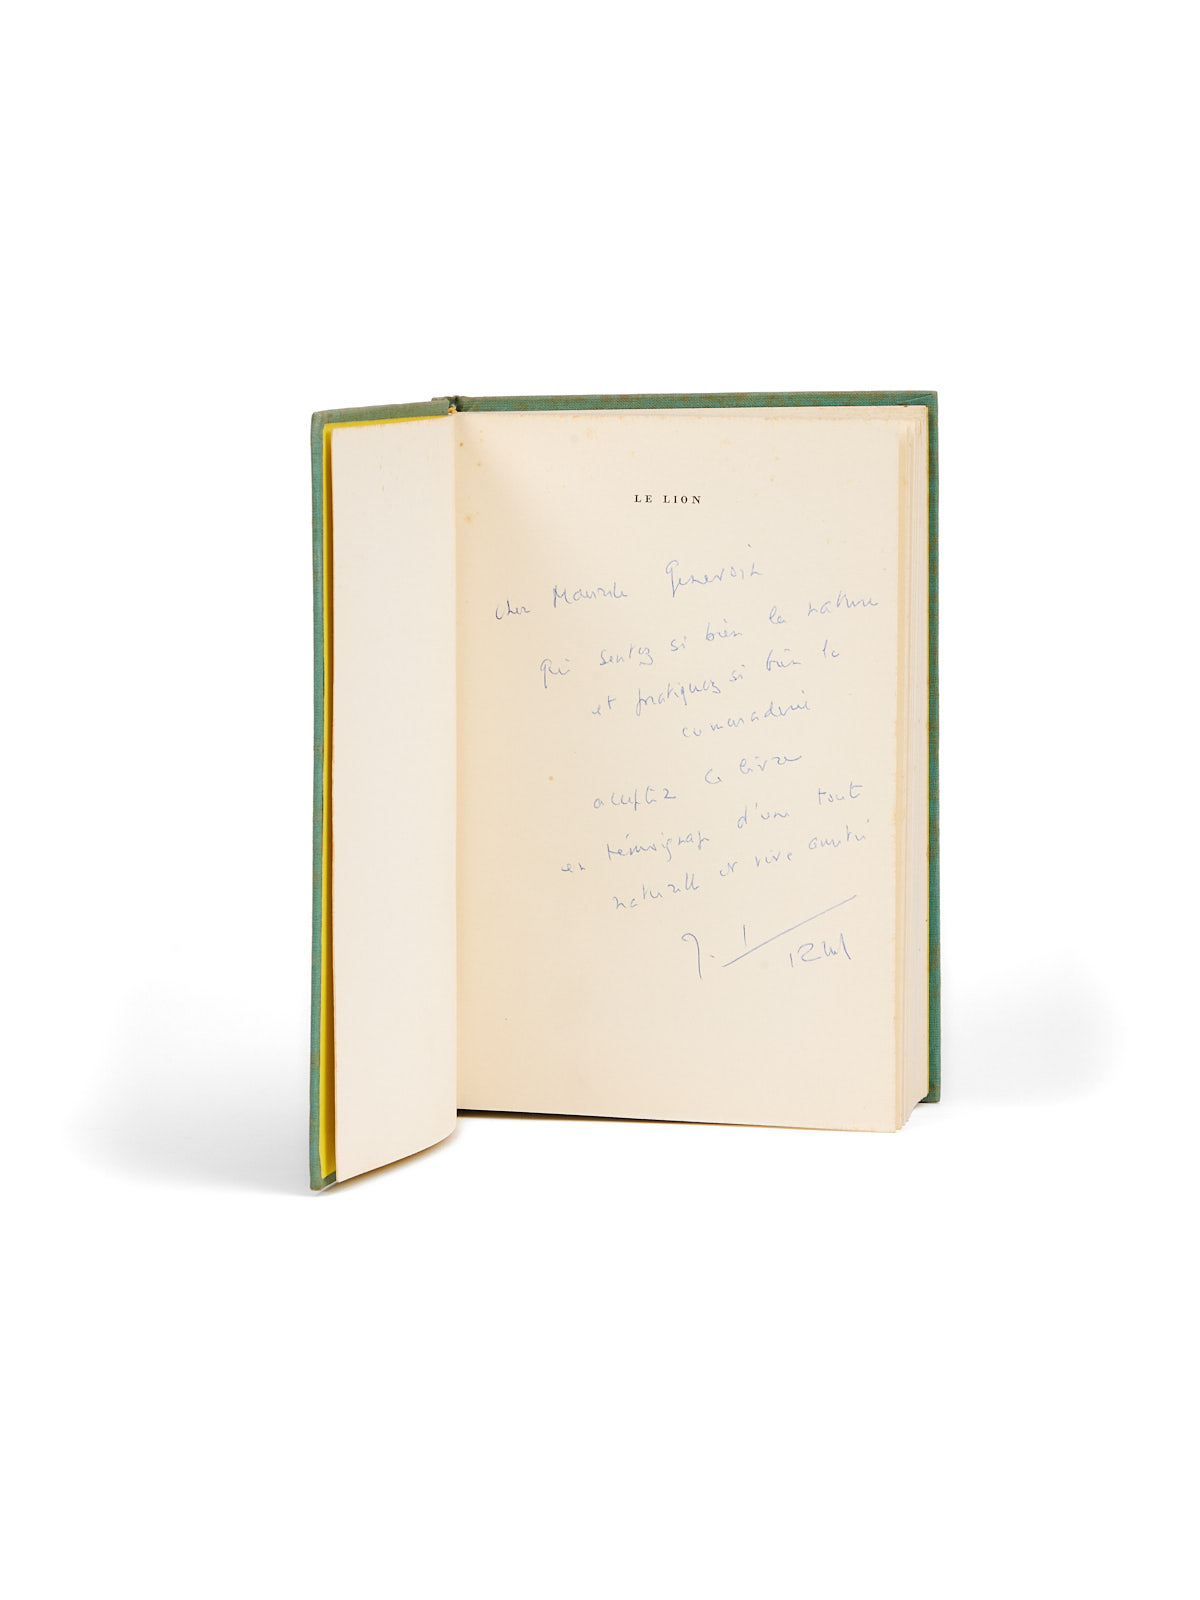 LE LION
Cher Maurice Genevoix
qui sentez si bien la nature
et pratiquez si bien la
camaraderie
acceptez ce livre
en témoignage d'une toute
naturelle et vive amitié
J.